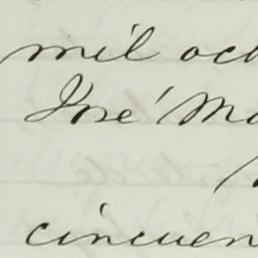 mil och
José Ma
cincuen